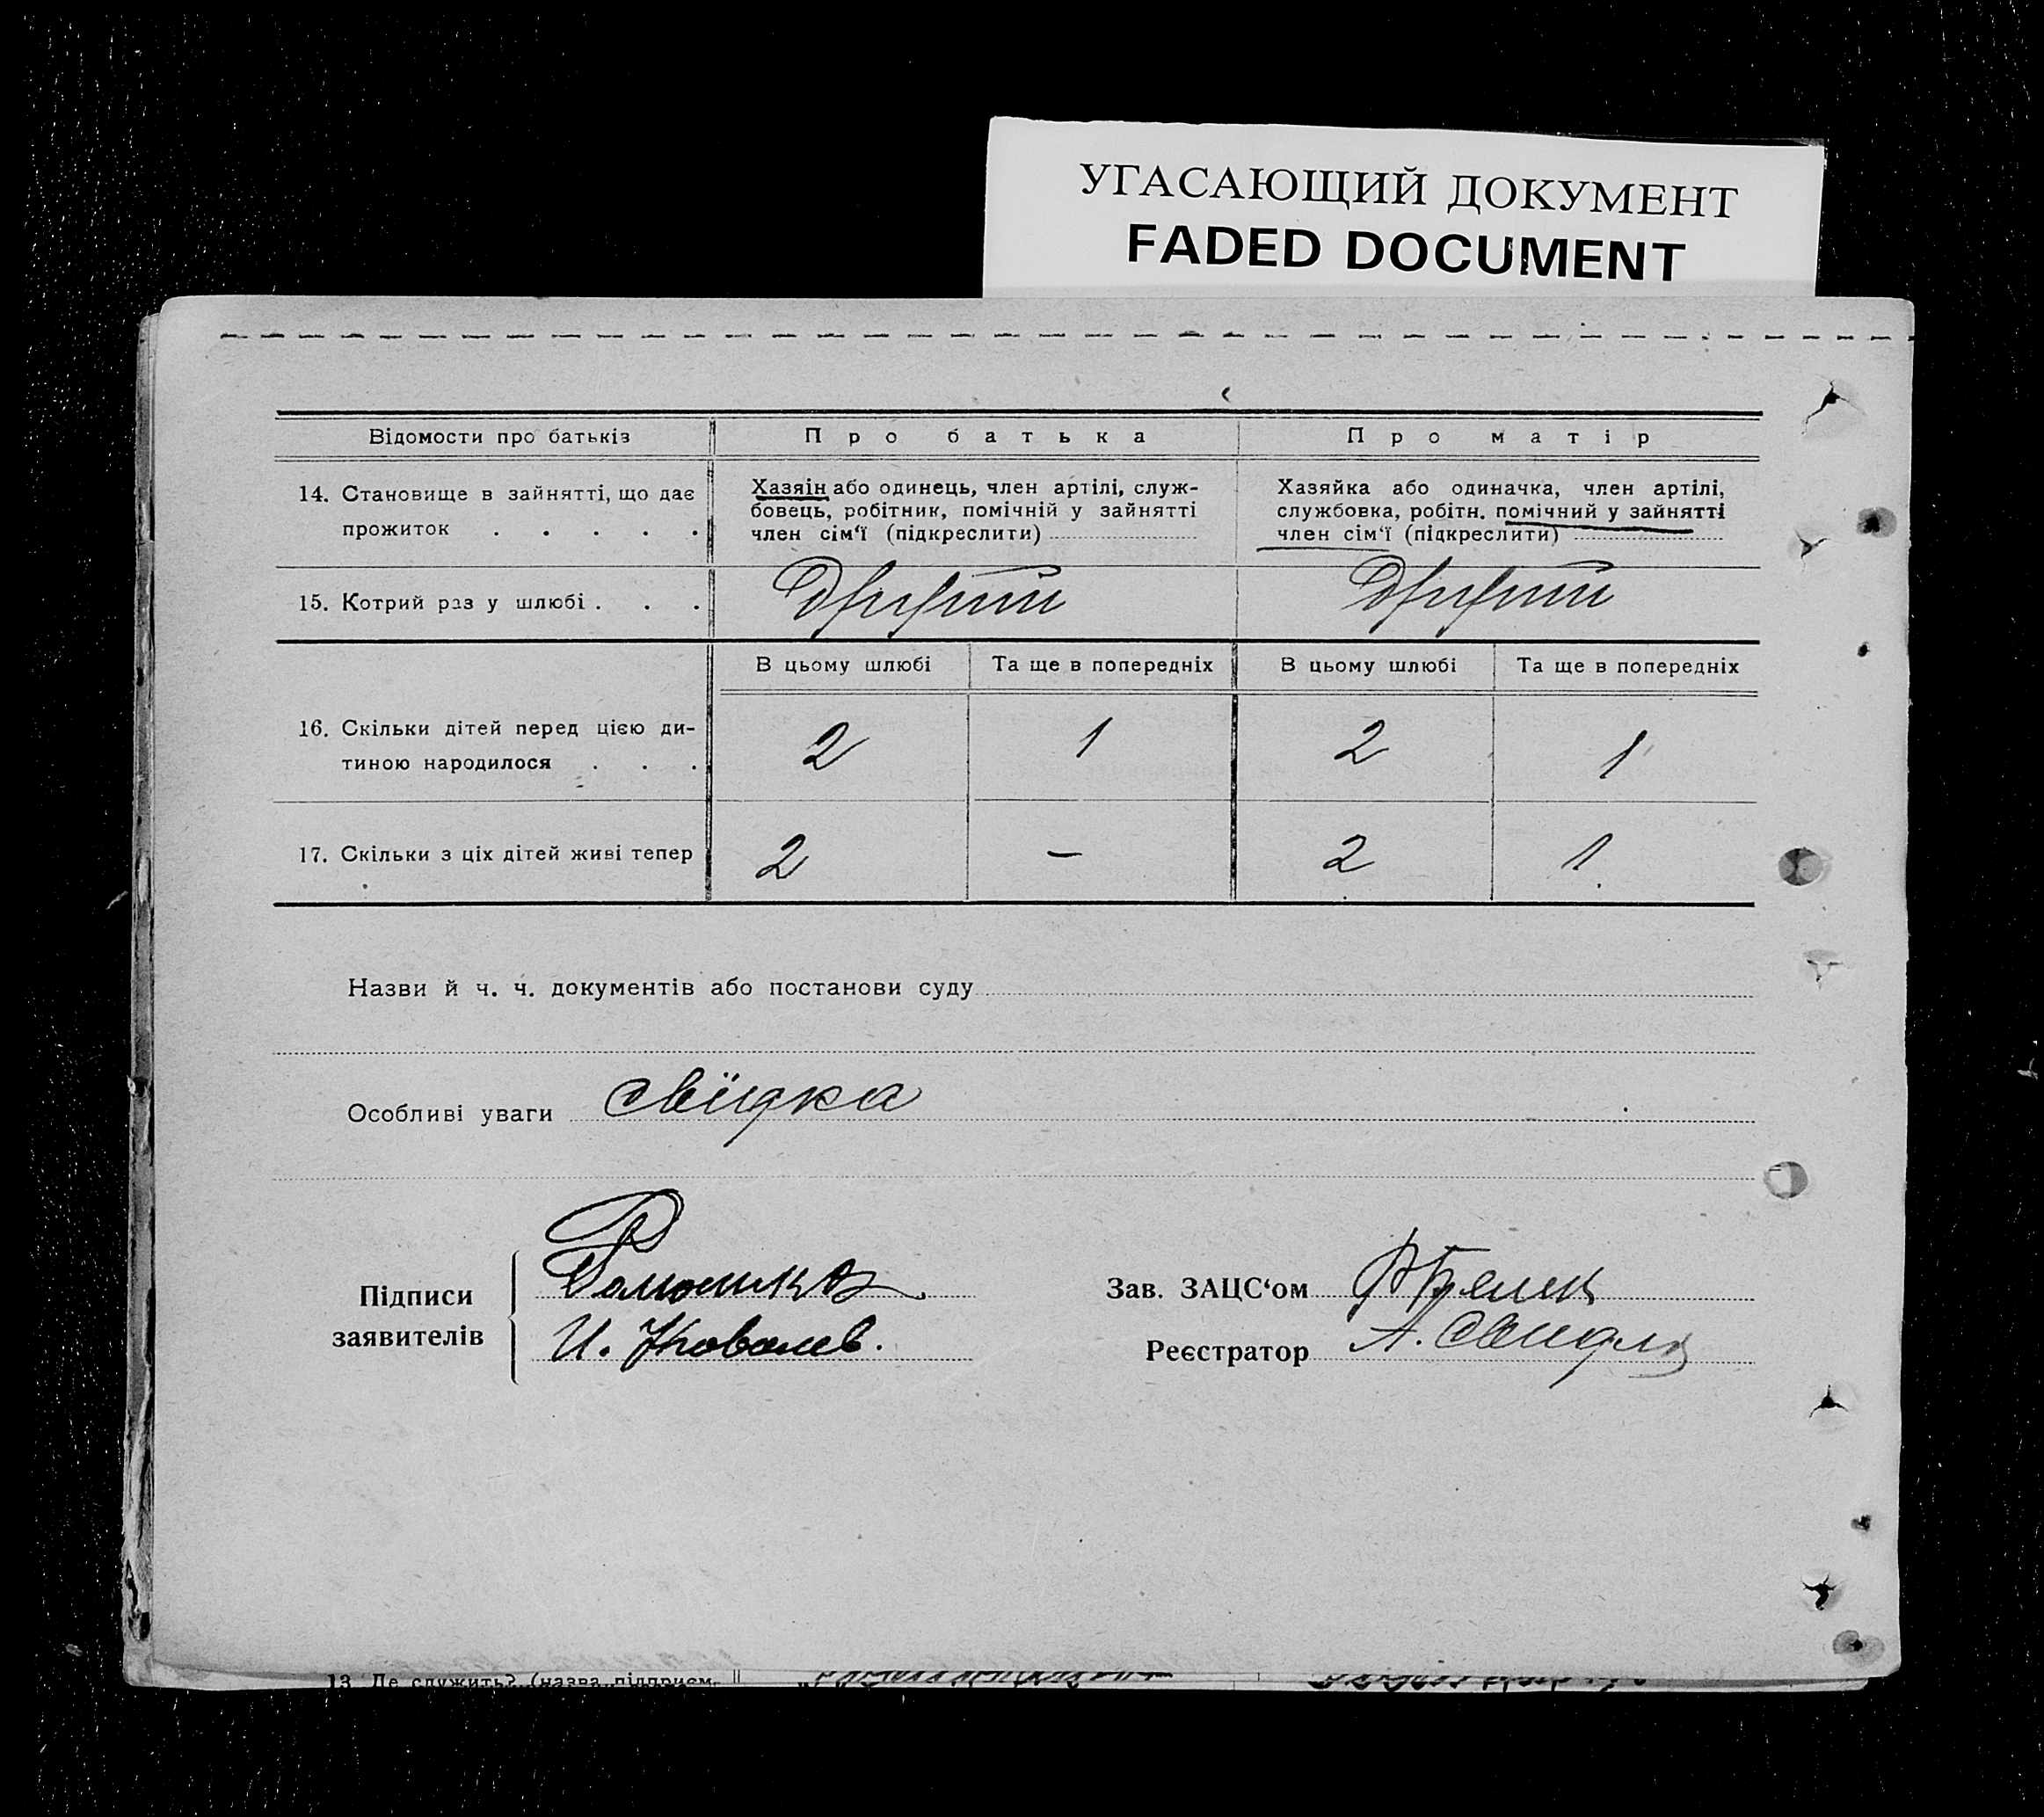 УГАСАЮЩИЙ ДОКУМЕНТ
FADED DOCUMENT
Відомости про батьків
Про батька
Про матір
14. Становище в зайнятті, що дає
прожиток . . . . .
Хазяїн або одинець, член артілі, служ-
бовець, робітник, помічній у зайнятті
член сім‘ї (підкреслити)
Хазяйка або одиначка, член артілі,
службовка, робітн. помічний у зайнятті
член сім‘ї (підкреслити)
15. Котрий раз у шлюбі . . .
Другий
Другий
В цьому шлюбі
Та ще в попередніх
В цьому шлюбі
Та ще в попередніх
16. Скільки дітей перед цією ди-
тиною народилося . . .
2
1
2
1
17. Скільки з ціх дітей живі тепер
2
—
2
1
Назви й ч. ч. документів або постанови суду
Особливі уваги
свідка
Підписи
заявителів
И. Ковалев.
Зав. ЗАЦС‘ом
Реєстратор
А.
13. Де служить? (назва підприєм.